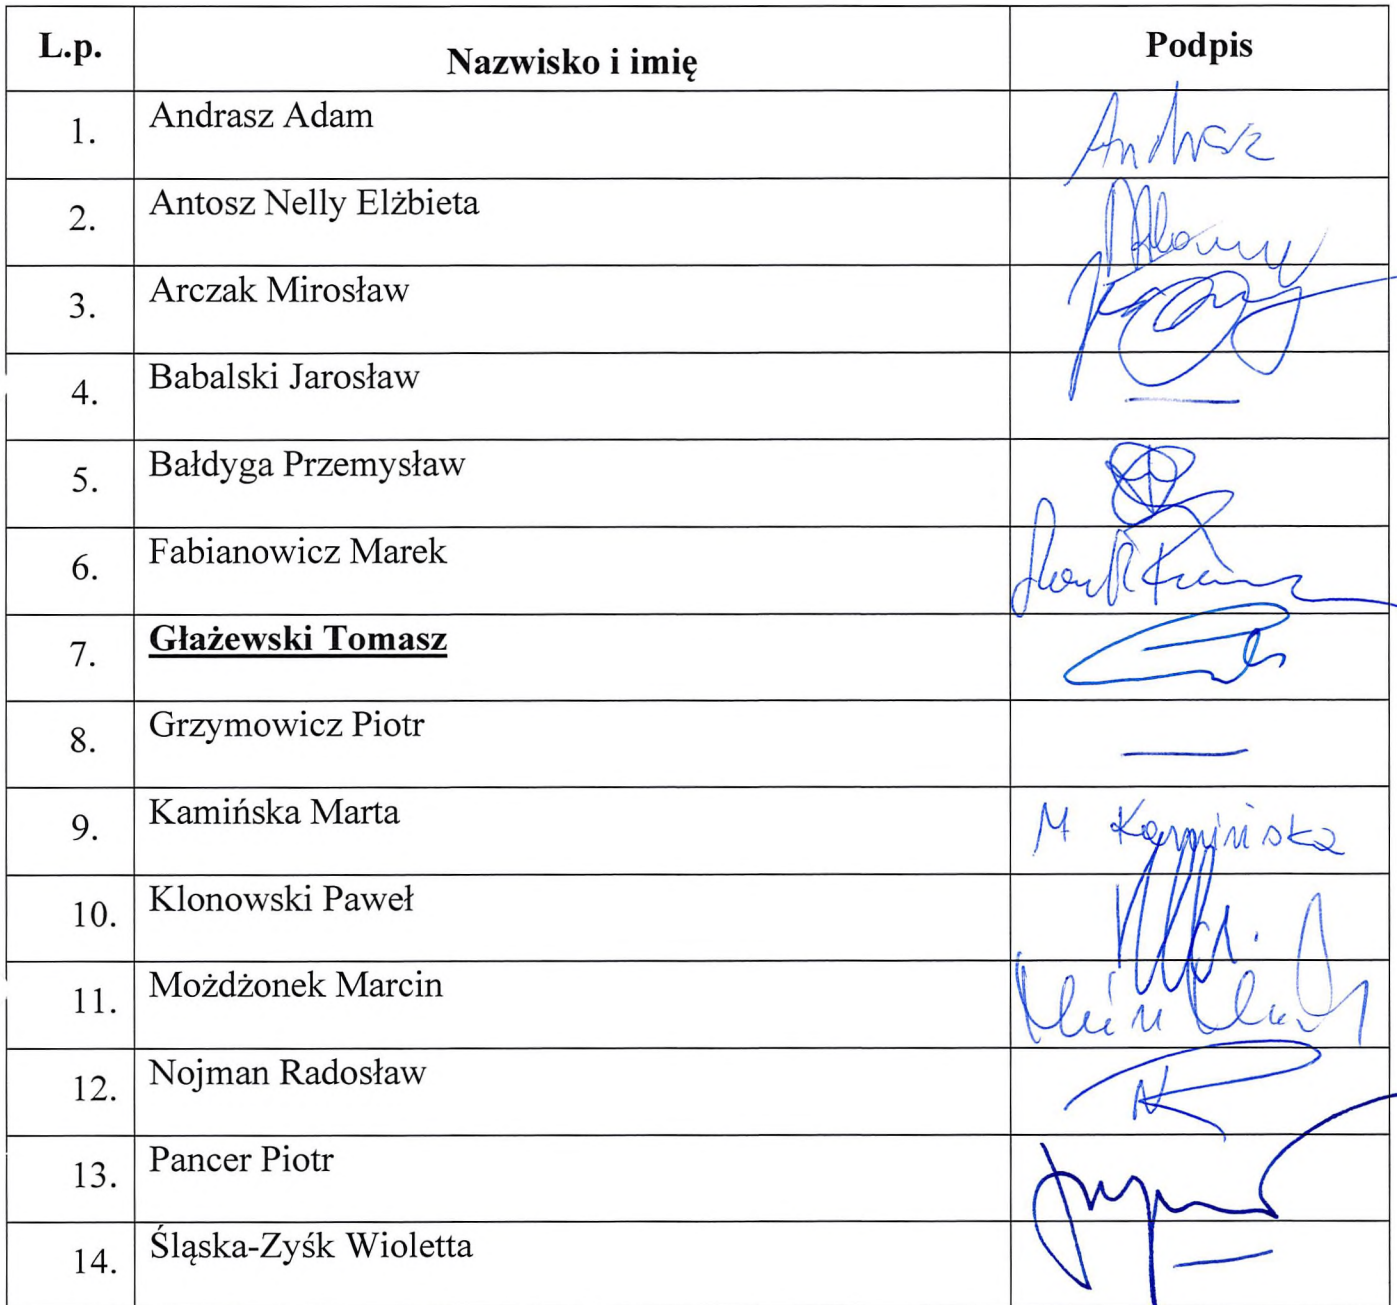 L.p. Nazwisko i imię Podpis
1. Andrasz Adam Andrasz
2. Antosz Nelly Elżbieta
3. Arczak Mirosław
4. Babalski Jarosław —
5. Bałdyga Przemysław
6. Fabianowicz Marek
7. Głażewski Tomasz
8. Grzymowicz Piotr —
9. Kamińska Marta M Kamińska
10. Klonowski Paweł
11. Możdżonek Marcin
12. Nojman Radosław
13. Pancer Piotr
14. Śląska-Zyśk Wioletta —